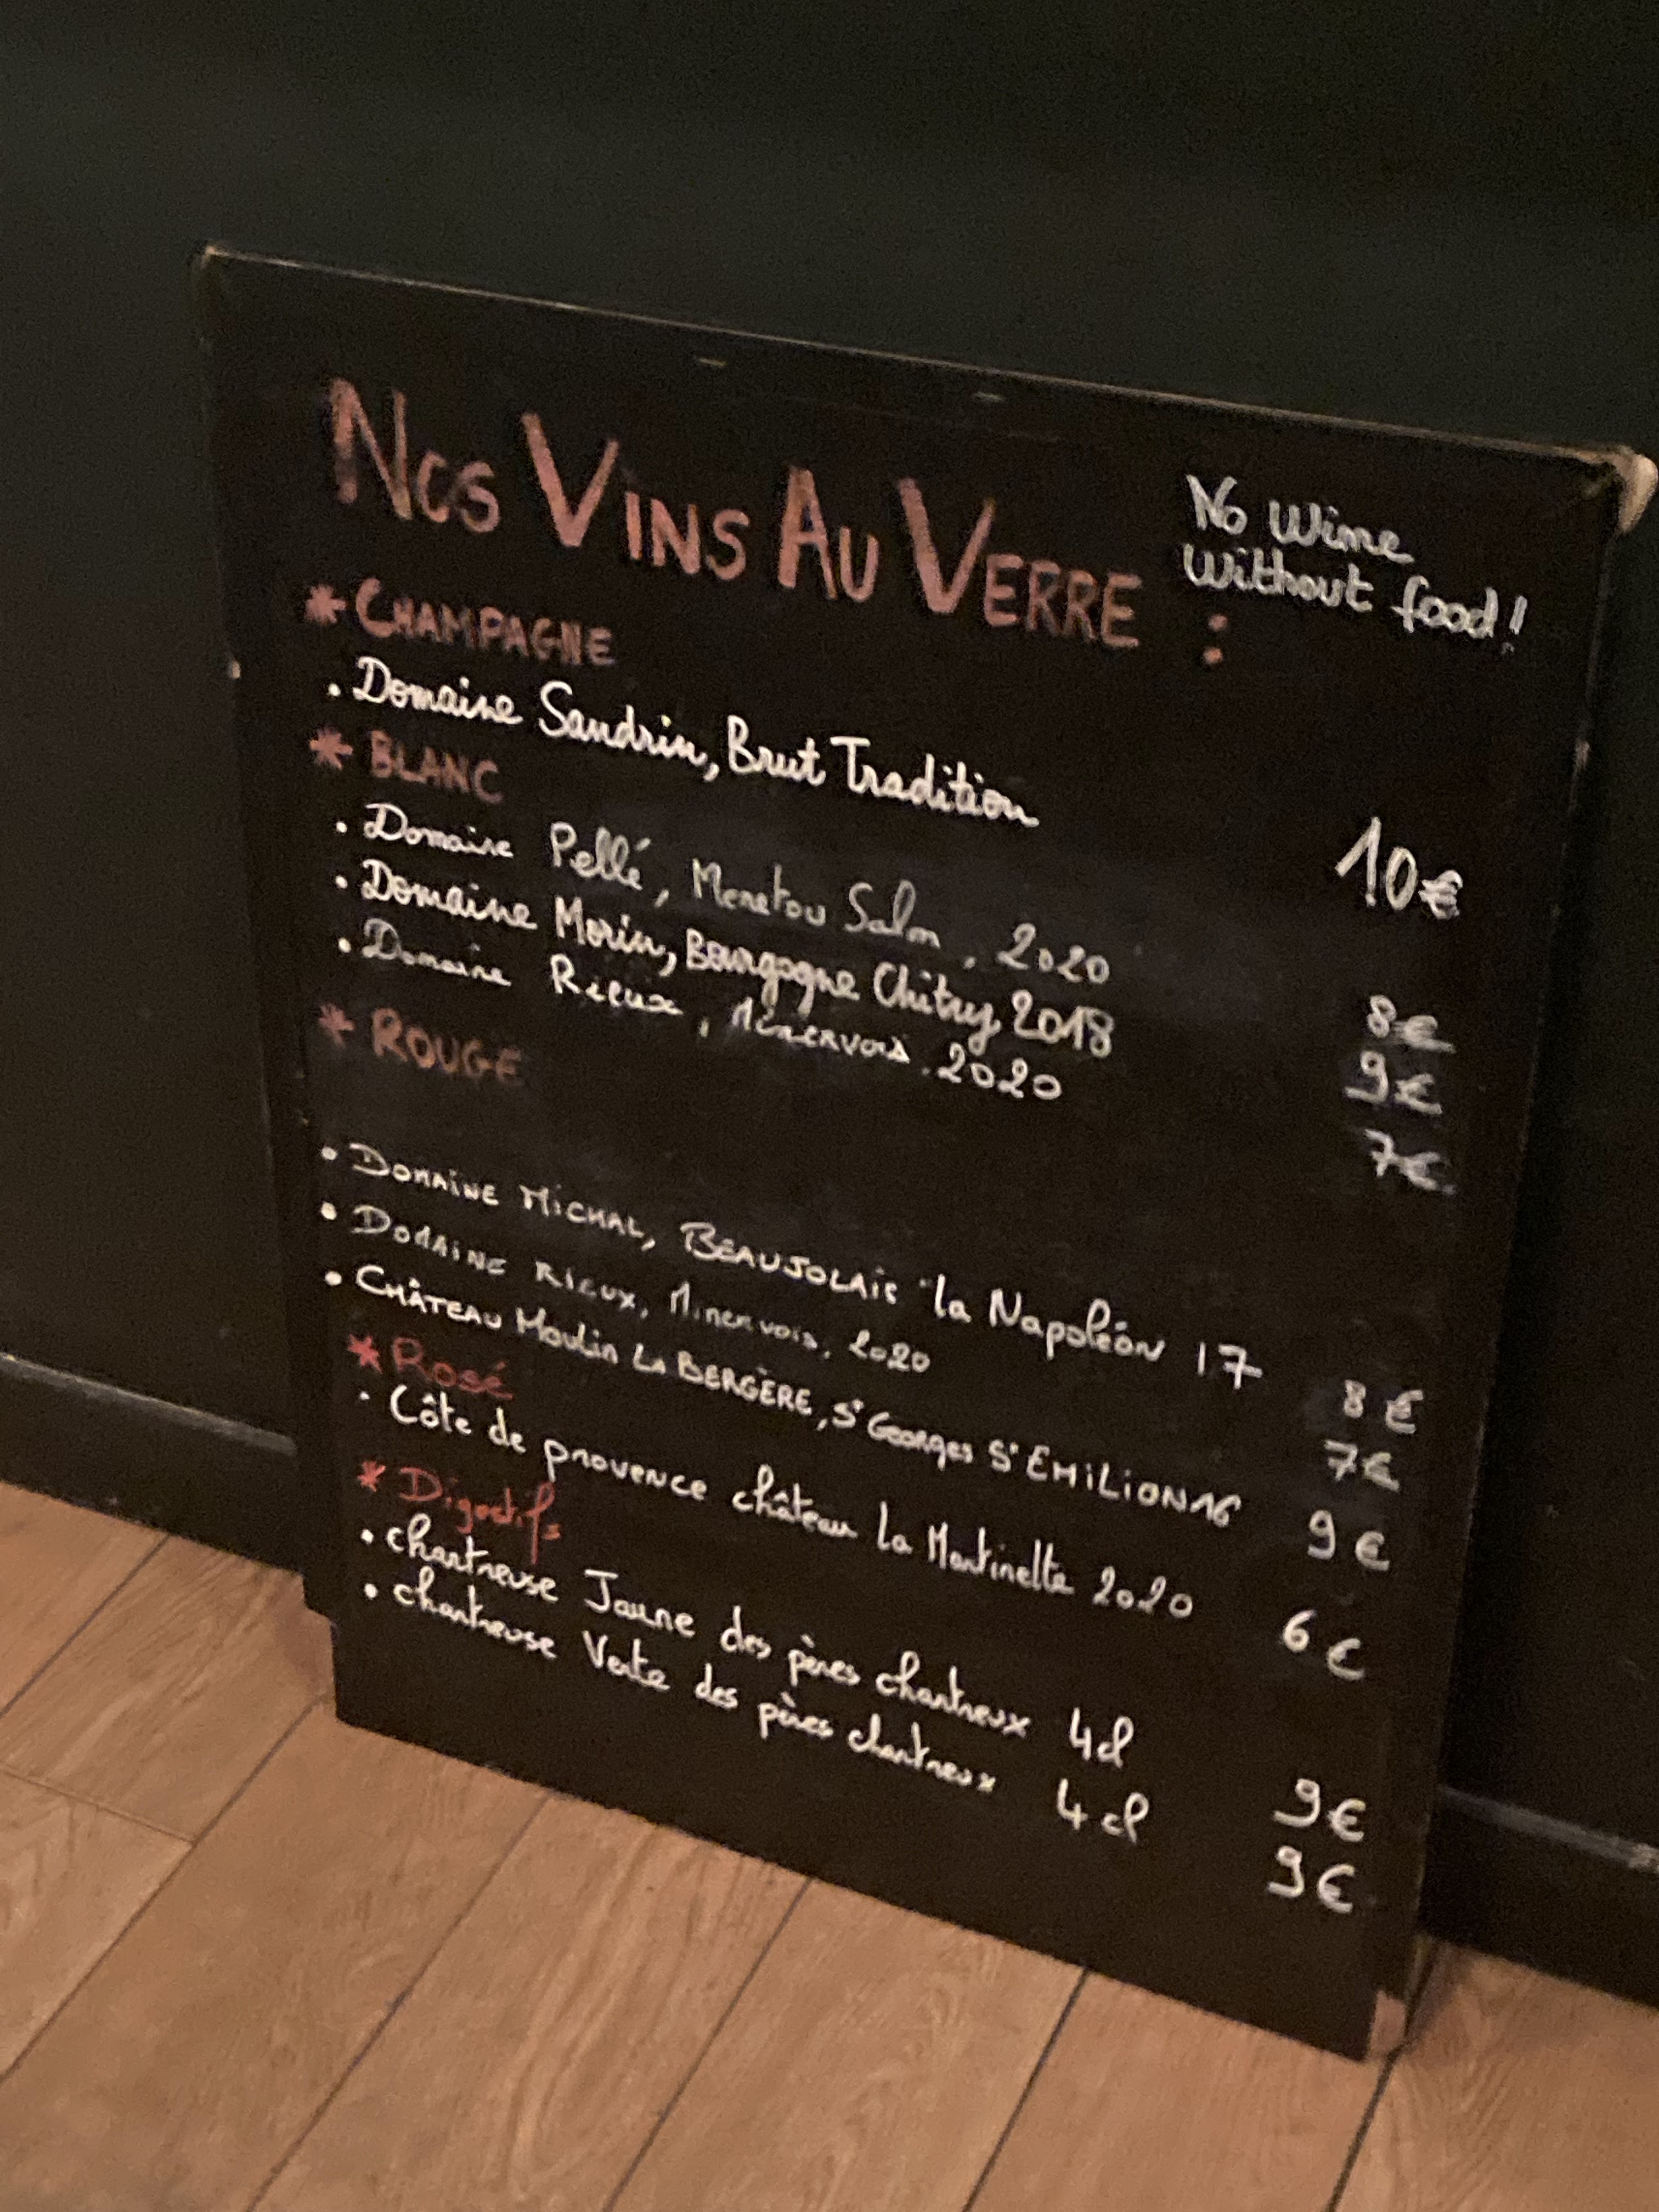 Nos Vins Au Verre :
No Wine
Without food!
* CHAMPAGNE
. Domaine Sandrin, Brut Tradition 10€
* BLANC
. Domaine Pellé, Menetou Salon, 2020 8€
. Domaine Morin, Bourgogne Chitry 2018 9€
. Domaine Rieux, Minervois. 2020 7€
* ROUGE
• DOMAINE MICHAL, BEAUJOLAIS "la Napoléon 17 8€
• DOMAINE RIEUX, Minervois, 2020 7€
• CHÂTEAU Moulin LA BERGÈRE, St Georges St EMILION 16 9€
* Rosé
. Côte de provence château la Martinette 2020 6€
* Digestifs
. chartreuse Jaune des pères chartreux 4cl 9€
. chartreuse Verte des pères chartreux 4cl 9€